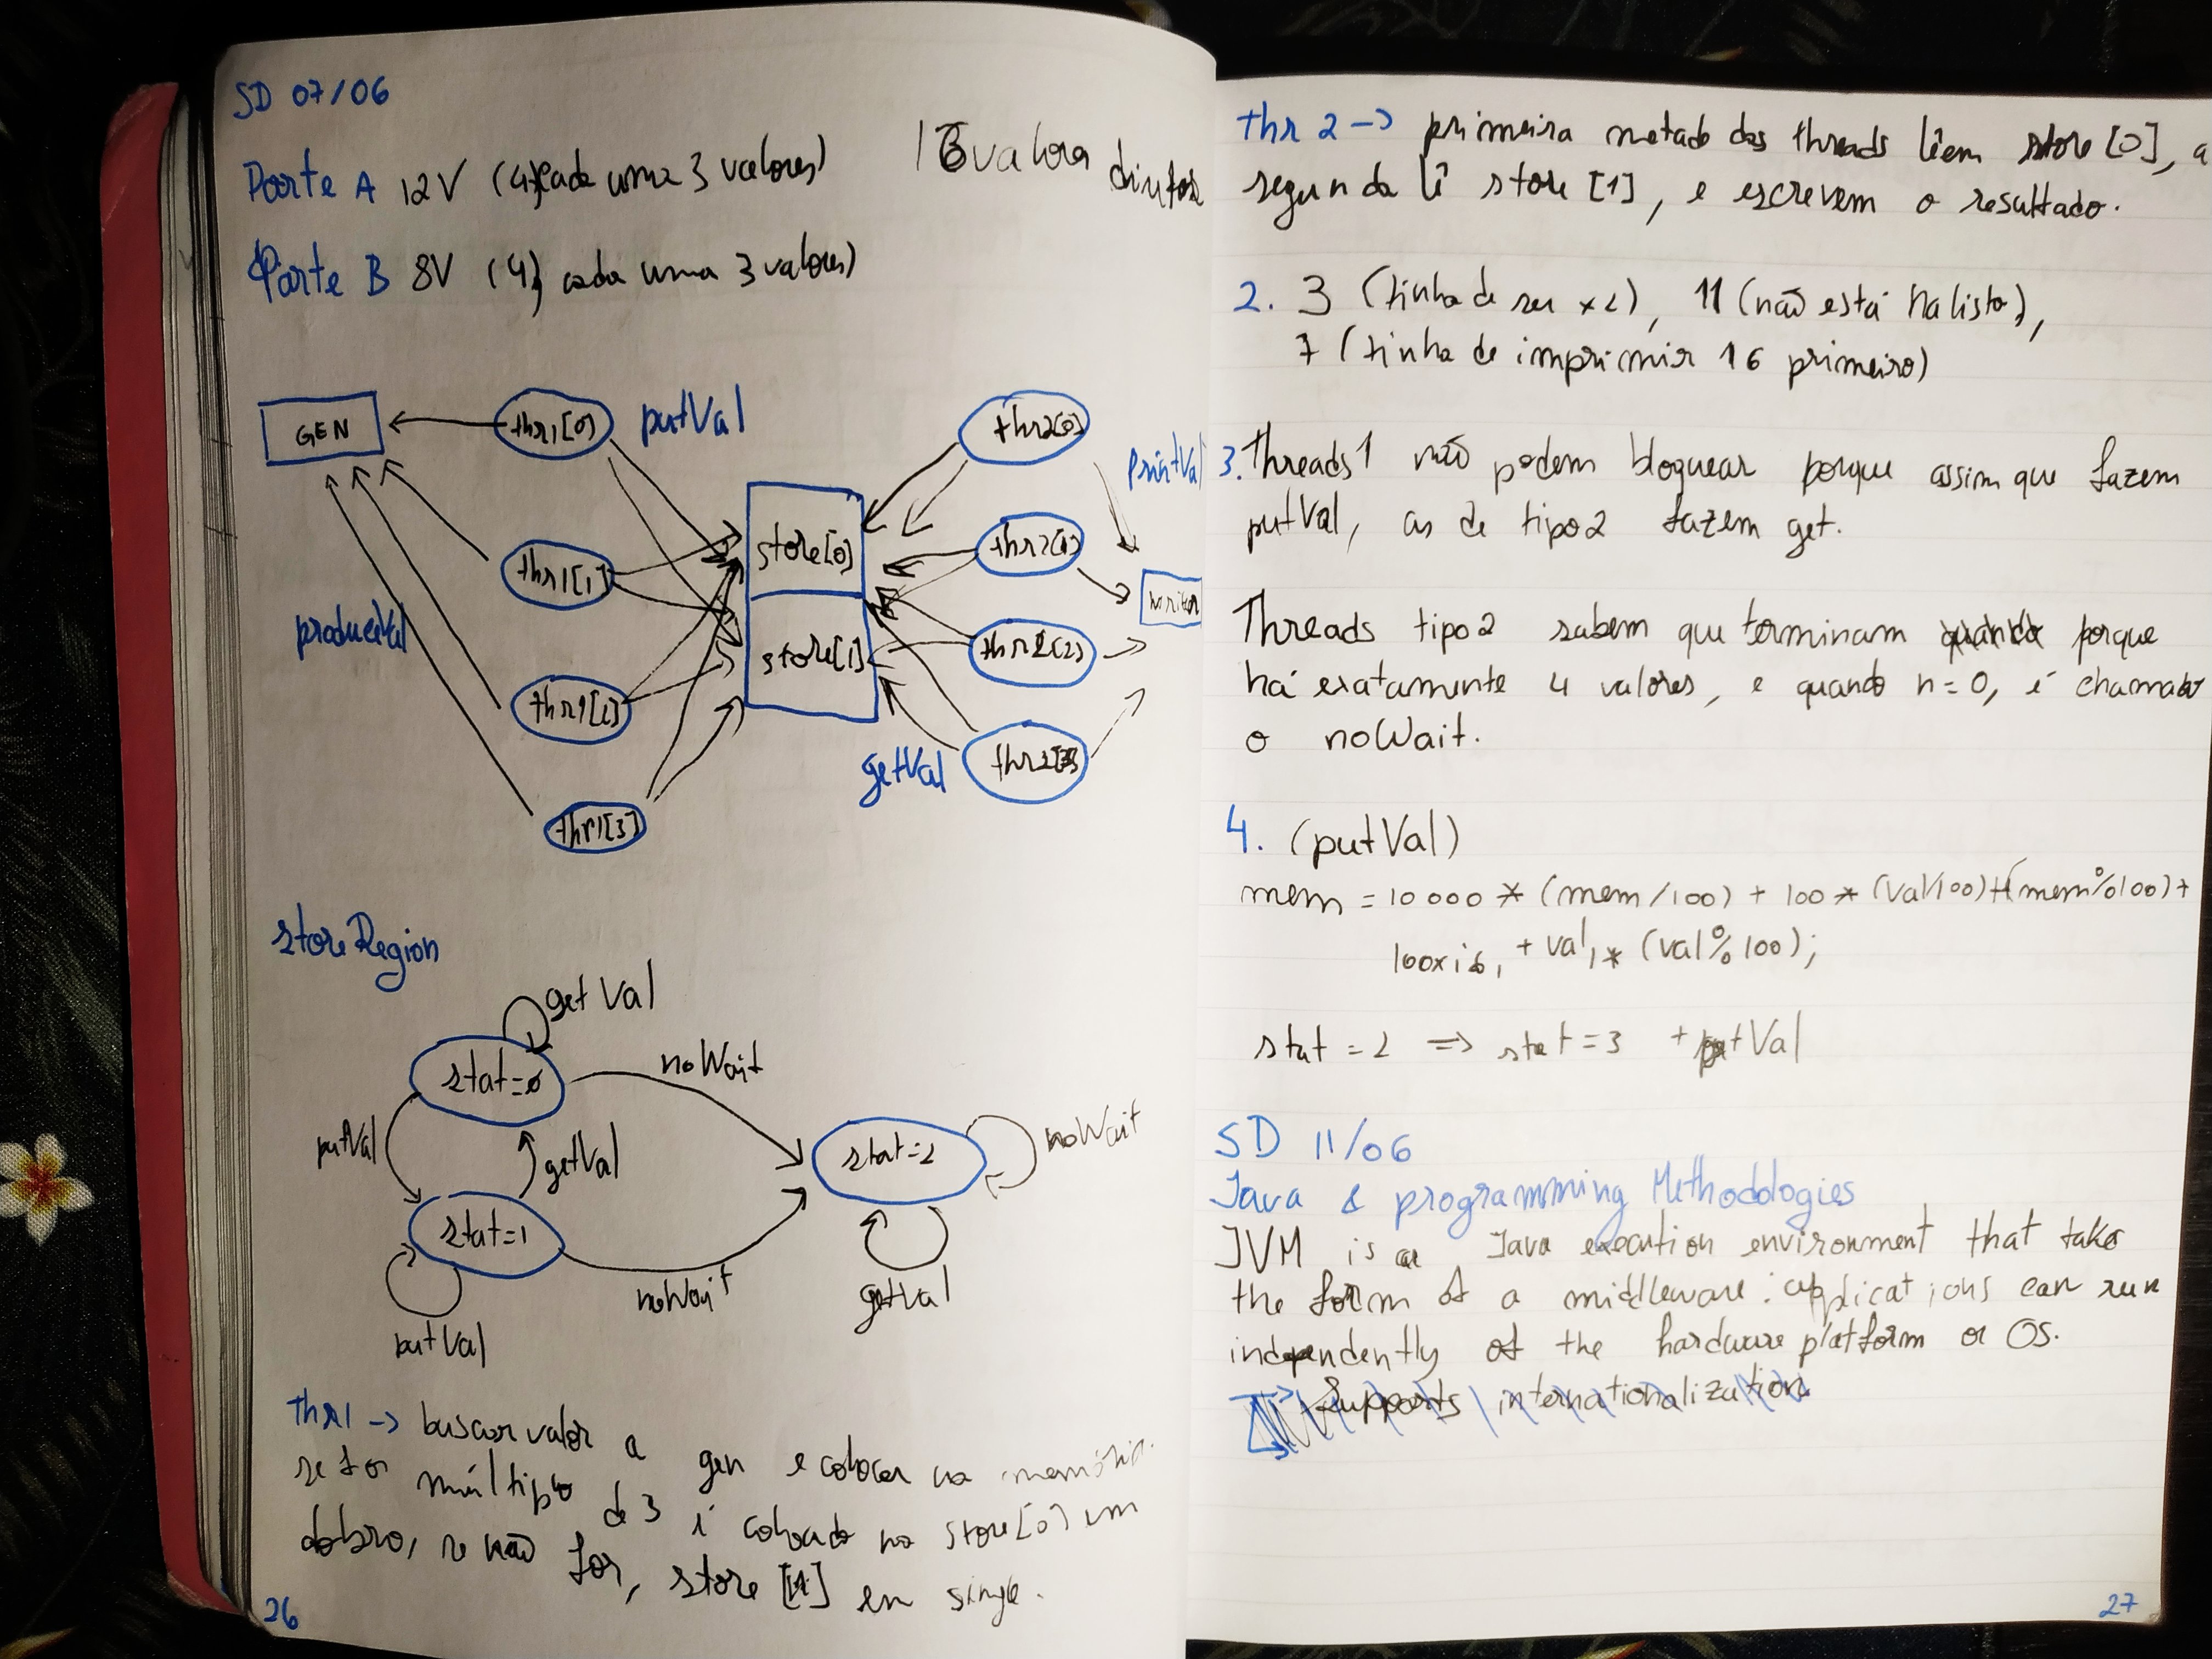 SD 07/06
Parte A 12V (4} cada uma 3 valores)
16 valores diretos
Parte B 8V (4} cada uma 3 valores)
GEN
thr1[0]
putVal
thr2[0]
printVal
store[0]
thr1[1]
thr2[1]
writer
produceVal
store[1]
thr2[2]
thr1[2]
getVal
thr2[3]
thr1[3]
storeRegion
getVal
stat=0
noWait
putVal
getVal
stat=2
noWait
stat=1
noWait
getVal
putVal
Thr1 -> buscar valor a gen e colocar na memória.
se for múltiplo de 3 é colocado no store[0] em
dobro, se não for, store [1] em single.
26
Thr 2 -> primeira metade das threads lêem store [0], a
segunda lê store [1], e escrevem o resultado.
2. 3 (tinha de ser x2), 11 (não está na lista),
7 (tinha de imprimir 16 primeiro)
3. Threads 1 não podem bloquear porque assim que fazem
putVal, as de tipo 2 fazem get.
Threads tipo 2 sabem que terminam porque
há exatamente 4 valores, e quando n=0, é chamado
o noWait.
4. (putVal)
mem = 10 000 * (mem/100) + 100 * (val/100) + (mem%100) +
+ val * (val%100);
stat = 2 => stat = 3 + putVal
SD 11/06
Java & programming Methodologies
JVM is a Java execution environment that take
the form of a middleware: applications can run
independently of the hardware platform or OS.
Supports internationalization
27